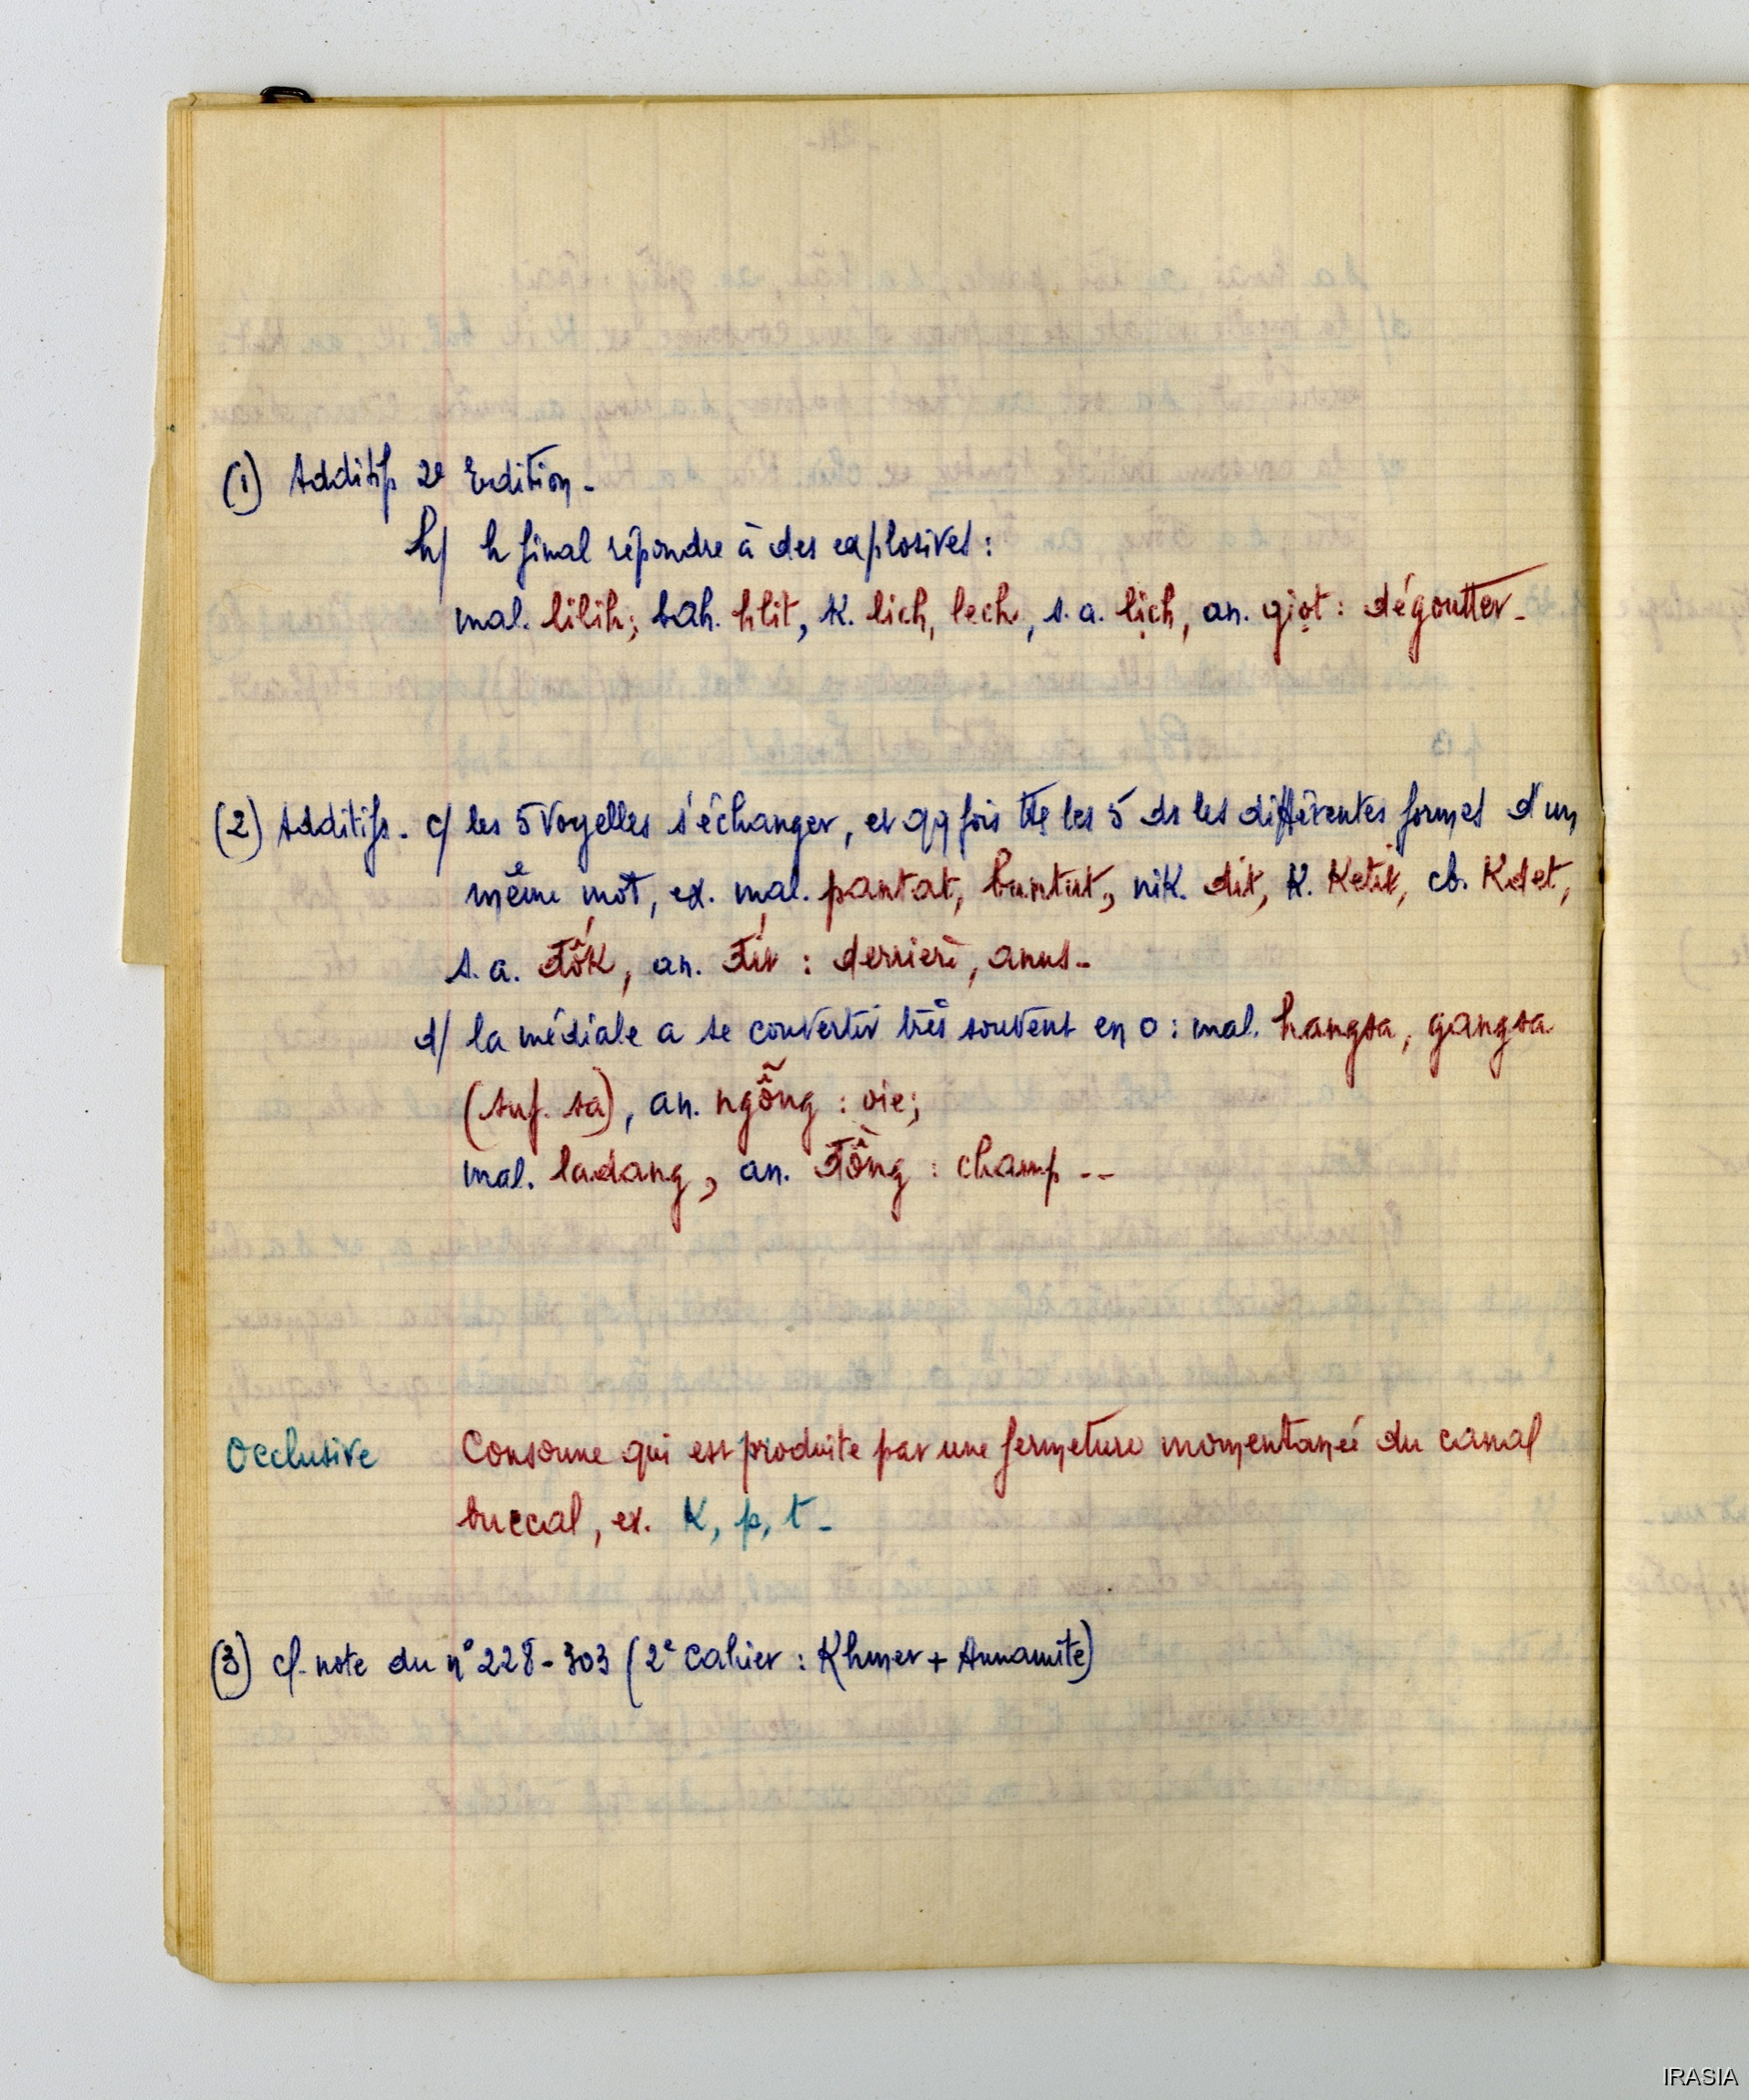 (1) Additifs 2e Edition -
h/ h final répondre à des explosives :
mal. lilih; bah. hlit, K. lich, lech, s.a. lịch, an. giọt : dégoutter -
(2) Additifs - c/ les 5 voyelles s'échanger, et qq fois ttes les 5 ds les différentes formes d'un
même mot, ex. mal. pantat, buntut, nik. dit, K. Ketit, cb. Kdet,
s.a. đốk, an. đít : derrière, anus -
d/ la médiale a se convertir très souvent en o : mal. hangsa, gangsa
(suf. sa), an. ngỗng : oie;
mal. ladang, an. đồng : champ --
Occlusive Consonne qui est produite par une fermeture momentanée du canal
buccal, ex. K, p, t -
(3) cf. note du n° 228 - 303 (2e Cahier : Khmer + Annamite)
IRASIA